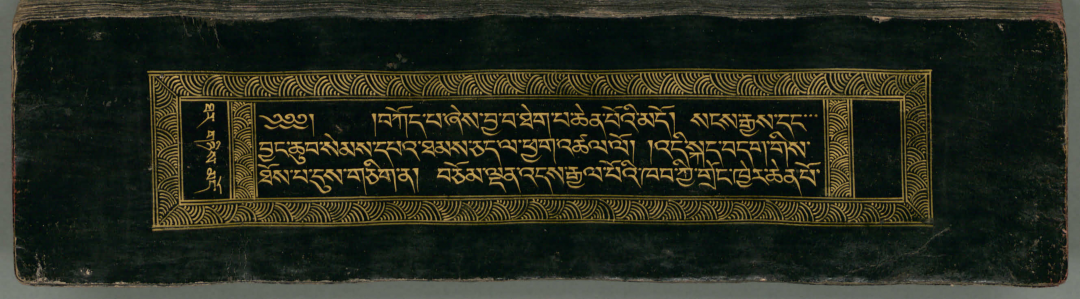 ༄༅༅། །བཀོད་པ་ཞེས་བྱ་བ་ཐེག་པ་ཆེན་པོའི་མདོ། སངས་རྒྱས་དང་
བྱང་ཆུབ་སེམས་དཔའ་ཐམས་ཅད་ལ་ཕྱག་འཚལ་ལོ། །འདི་སྐད་བདག་གིས་
ཐོས་པ་དུས་གཅིག་ན། བཅོམ་ལྡན་འདས་རྒྱལ་པོའི་ཁབ་ཀྱི་གྲོང་ཁྱེར་ཆེན་པོ་